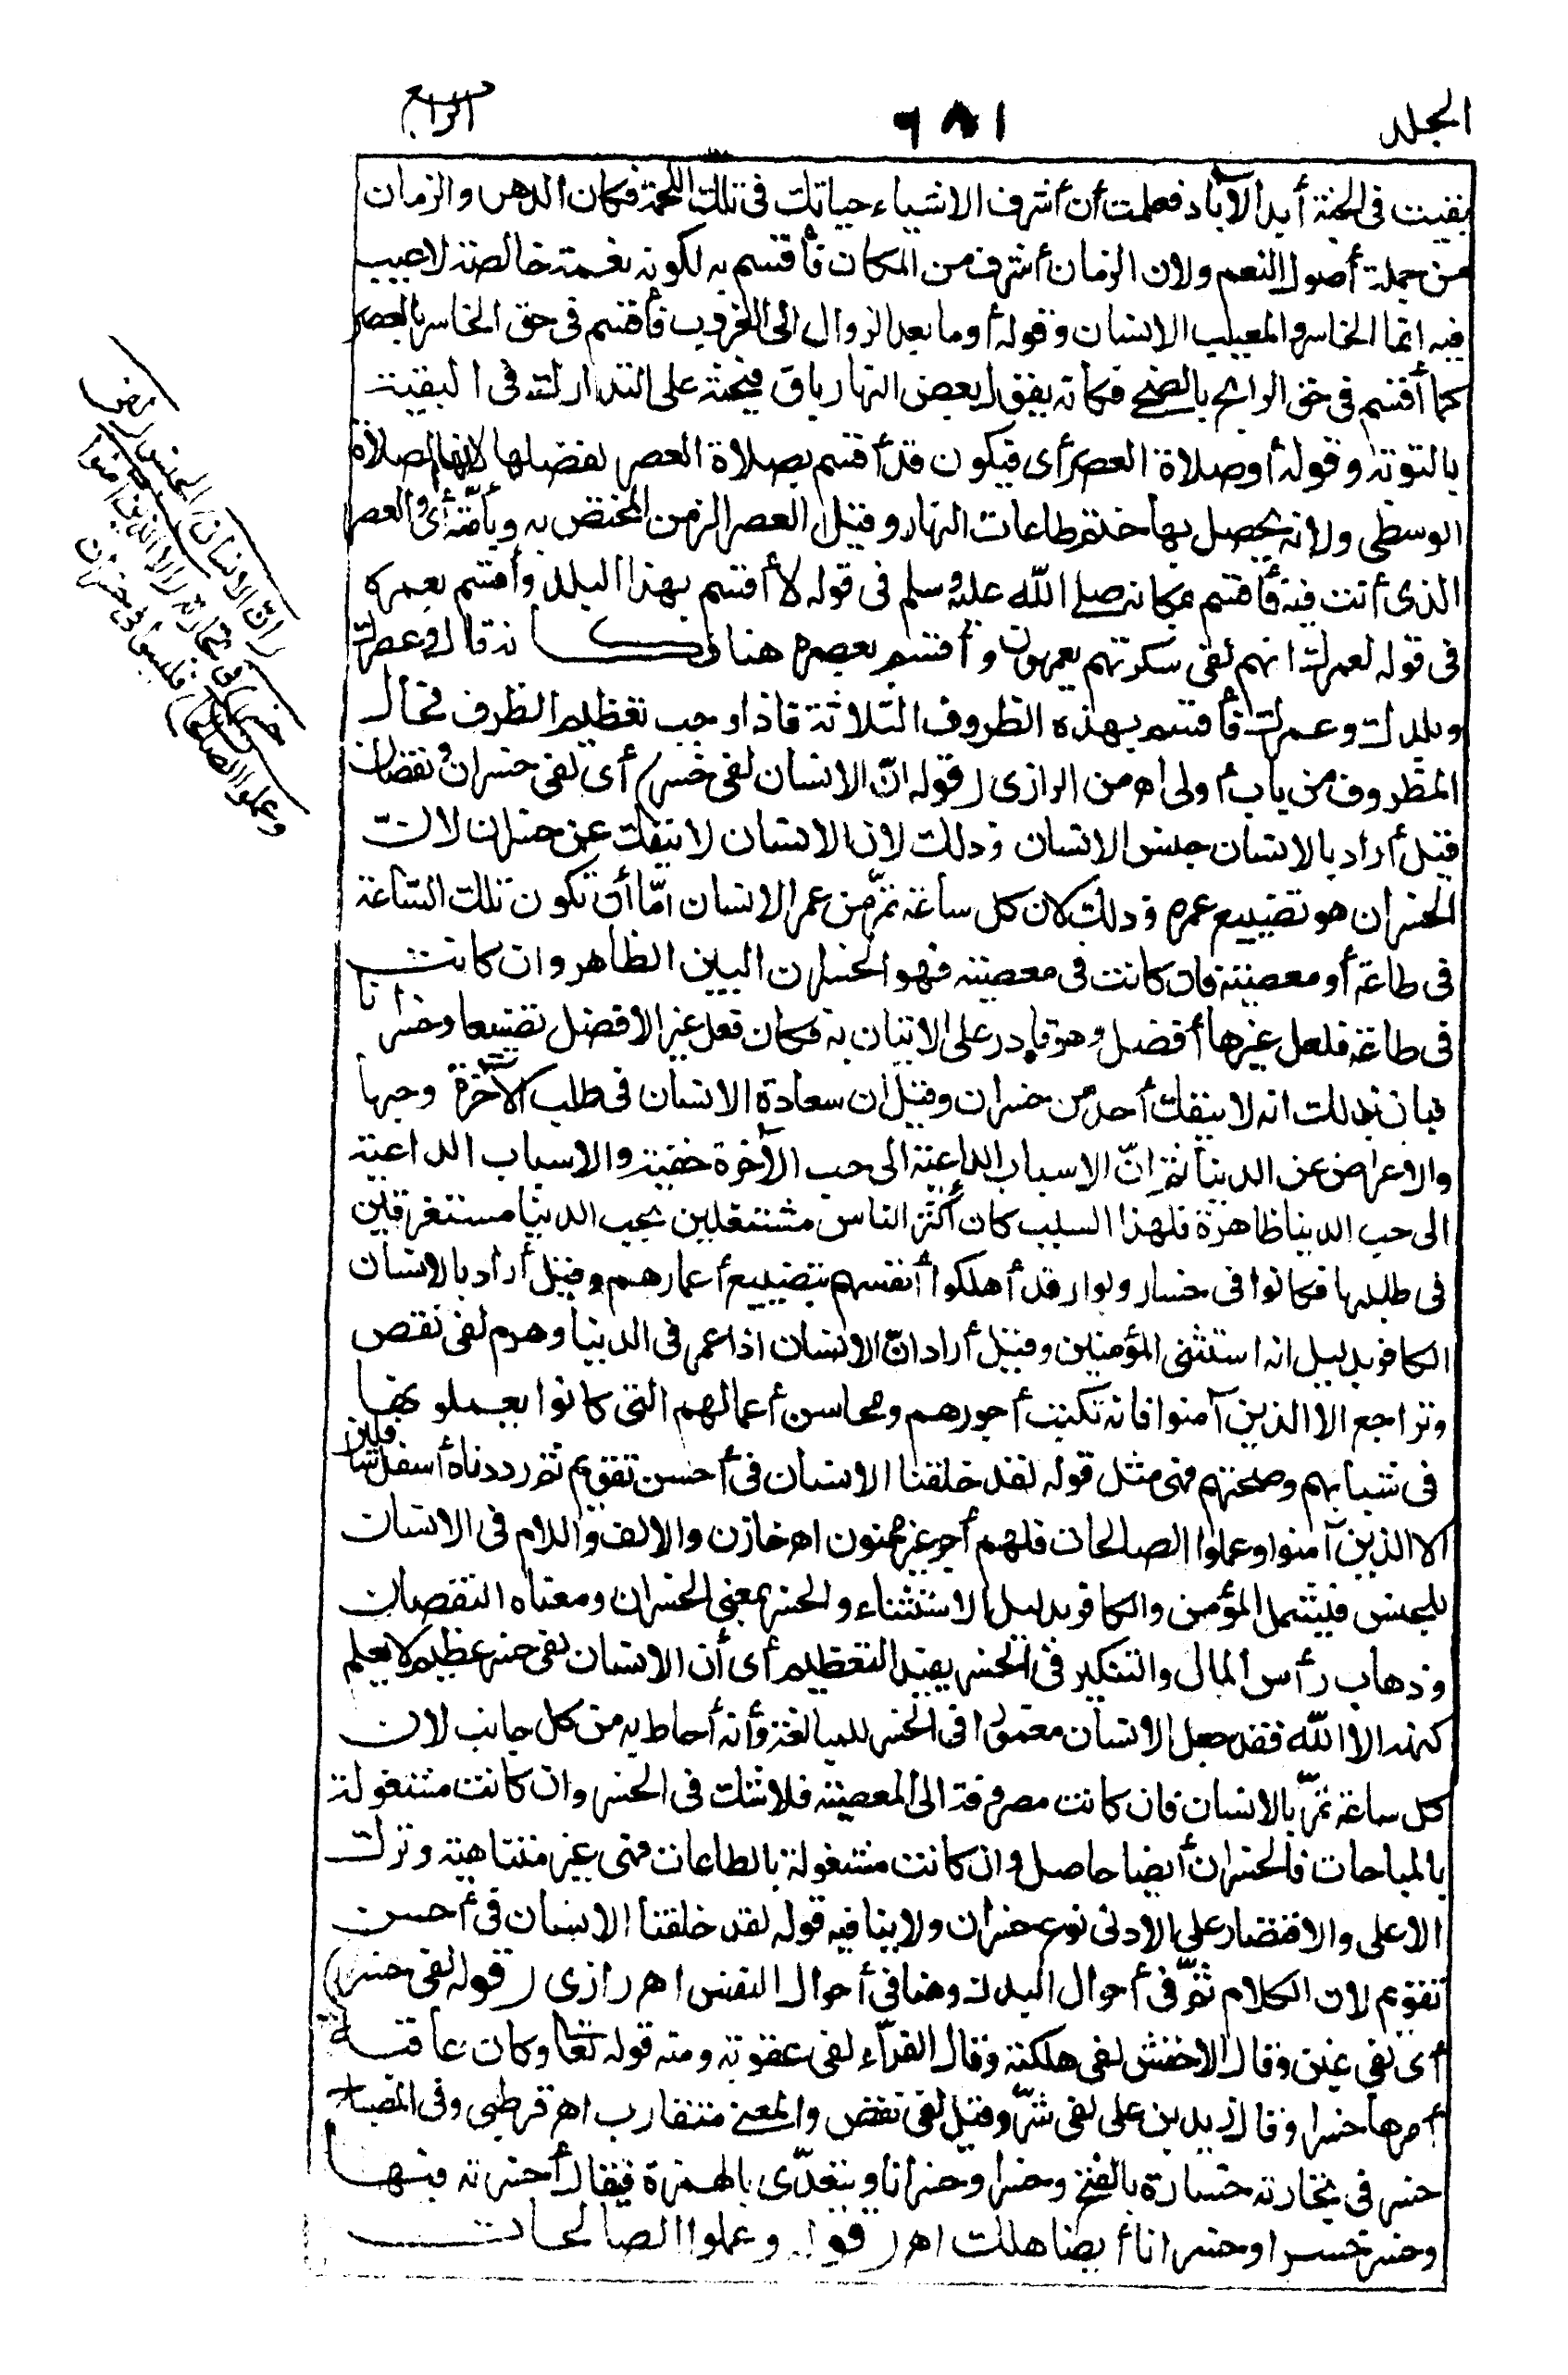 الجلد
٦٨١
الرابع
بقيت فى الجنة أبد الآباد فعلمت أن أشرف الاشياء حياتك فى تلك اللمحة فكان الدهر والزمان
من جملة أصول النعم ولان الزمان أشرف من المكان فأقسم به لكونه نعمة خالصة لاعيب
فيه انما الخاسر والمعيب الانسان وقوله أو ما بعد الزوال الى الغروب فأقسم فى حق الخاسر بالعصر
كما أقسم فى حق الرابح بالضحى فكانه يقول بعض النهار باق فيحثه على التدارك فى البقية
بالتوبة وقوله أو صلاة العصر أى فيكون قد أقسم بصلاة العصر لفضلها لانها الصلاة
الوسطى ولانه يحصل بها ختم طاعات النهار وقيل العصر الزمن المختص به وبأمته أى والعصر
الذى أنت فيه فأقسم بمكانه صلى الله عليه وسلم فى قوله لا أقسم بهذا البلد وأقسم بعمره
فى قوله لعمرك انهم لفى سكرتهم يعمهون وأقسم بعصره هنا فكـــانه قال وعصرك
وبلدك وعمرك فأقسم بهذه الظروف الثلاثة فاذا وجب تعظيم الظرف فحال
المظروف من باب أولى اهـ من الرازى (قوله انّ الانسان لفى خسر) أى لفى خسران ونقصان
قيل أراد بالانسان جنس الانسان وذلك لان الانسان لا ينفك عن خسران لانّ
الخسران هو تضييع عمره وذلك لان كل ساعة تمرّ من عمر الانسان امّا أن تكون تلك السّاعة
فى طاعة أو معصية فان كانت فى معصية فهو الخسران البين الظاهر وان كانت
فى طاعة فلعل غيرها أفضل وهو قادر على الاتيان به فكان فعل غير الافضل تضييعا وخسرانا
فبان بذلك انه لا ينفك أحد من خسران وقيل ان سعادة الانسان فى طلب الآخرة وحبها
والاعراض عن الدنيا ثم انّ الاسباب الداعية الى حب الآخرة خفية والاسباب الداعية
الى حب الدنيا ظاهرة فلهذا السبب كان أكثر الناس مشتغلين بحب الدنيا مستغرقين
فى طلبها فكانوا فى خسار وبوار قد أهلكوا أنفسهم بتضييع أعمارهم وقيل أراد بالانسان
الكافر بدليل انه استثنى المؤمنين وقيل أراد انّ الانسان اذا عمر فى الدنيا وهرم لفى نقص
وتراجع الا الذين آمنوا فانه تكتب أجورهم ومحاسن أعمالهم التى كانوا يعملونها
فى شبابهم وصحتهم فهى مثل قوله لقد خلقنا الانسان فى أحسن تقويم ثم رددناه أسفل سافلين
الا الذين آمنوا وعملوا الصالحات فلهم أجر غير ممنون اهـ خازن والالف واللام فى الانسان
للجنس فيشمل المؤمن والكافر بدليل الاستثناء والخسر بمعنى الخسران ومعناه النقصان
وذهاب رأس المال والتنكير فى الخسر يفيد التعظيم أى أن الانسان لفى خسر عظيم لا يعلم
كنهه الا الله فقد جعل الانسان مغمورا فى الخسر للمبالغة وأنه أحاط به من كل جانب لان
كل ساعة تمرّ بالانسان فان كانت مصروفة الى المعصية فلا شك فى الخسر وان كانت مشغولة
بالمباحات فالخسران أيضا حاصل وان كانت مشغولة بالطاعات فهى غير متناهية وترك
الاعلى والاقتصار على الادنى نوع خسران ولا ينافيه قوله لقد خلقنا الانسان فى أحسن
تقويم لان الكلام ثمّ فى أحوال البدن وهنا فى أحوال النفس اهـ رازى (قوله لفى خسر)
أى لفى غبن وقال الاخفش لفى هلكة وقال الفرّاء لفى عقوبة ومنه قوله تعالى وكان عاقبة
أمرها خسرا وقال زيد بن على لفى شرّ وقيل لفى نقص والمعنى متقارب اهـ قرطبى وفى المصباح
خسر فى تجارته خسارة بالفتح وخسرا وخسرانا ويتعدّى بالهمزة فيقال أخسرته فيها
وخسر خسرا وخسرانا أيضا هلك اهـ (قوله وعملوا الصالحات
(انّ الانسان) الجنس (لفى
خسر) فى تجارته (الا الذين آمنوا
وعملوا الصالحات) فليسوا فى خسران